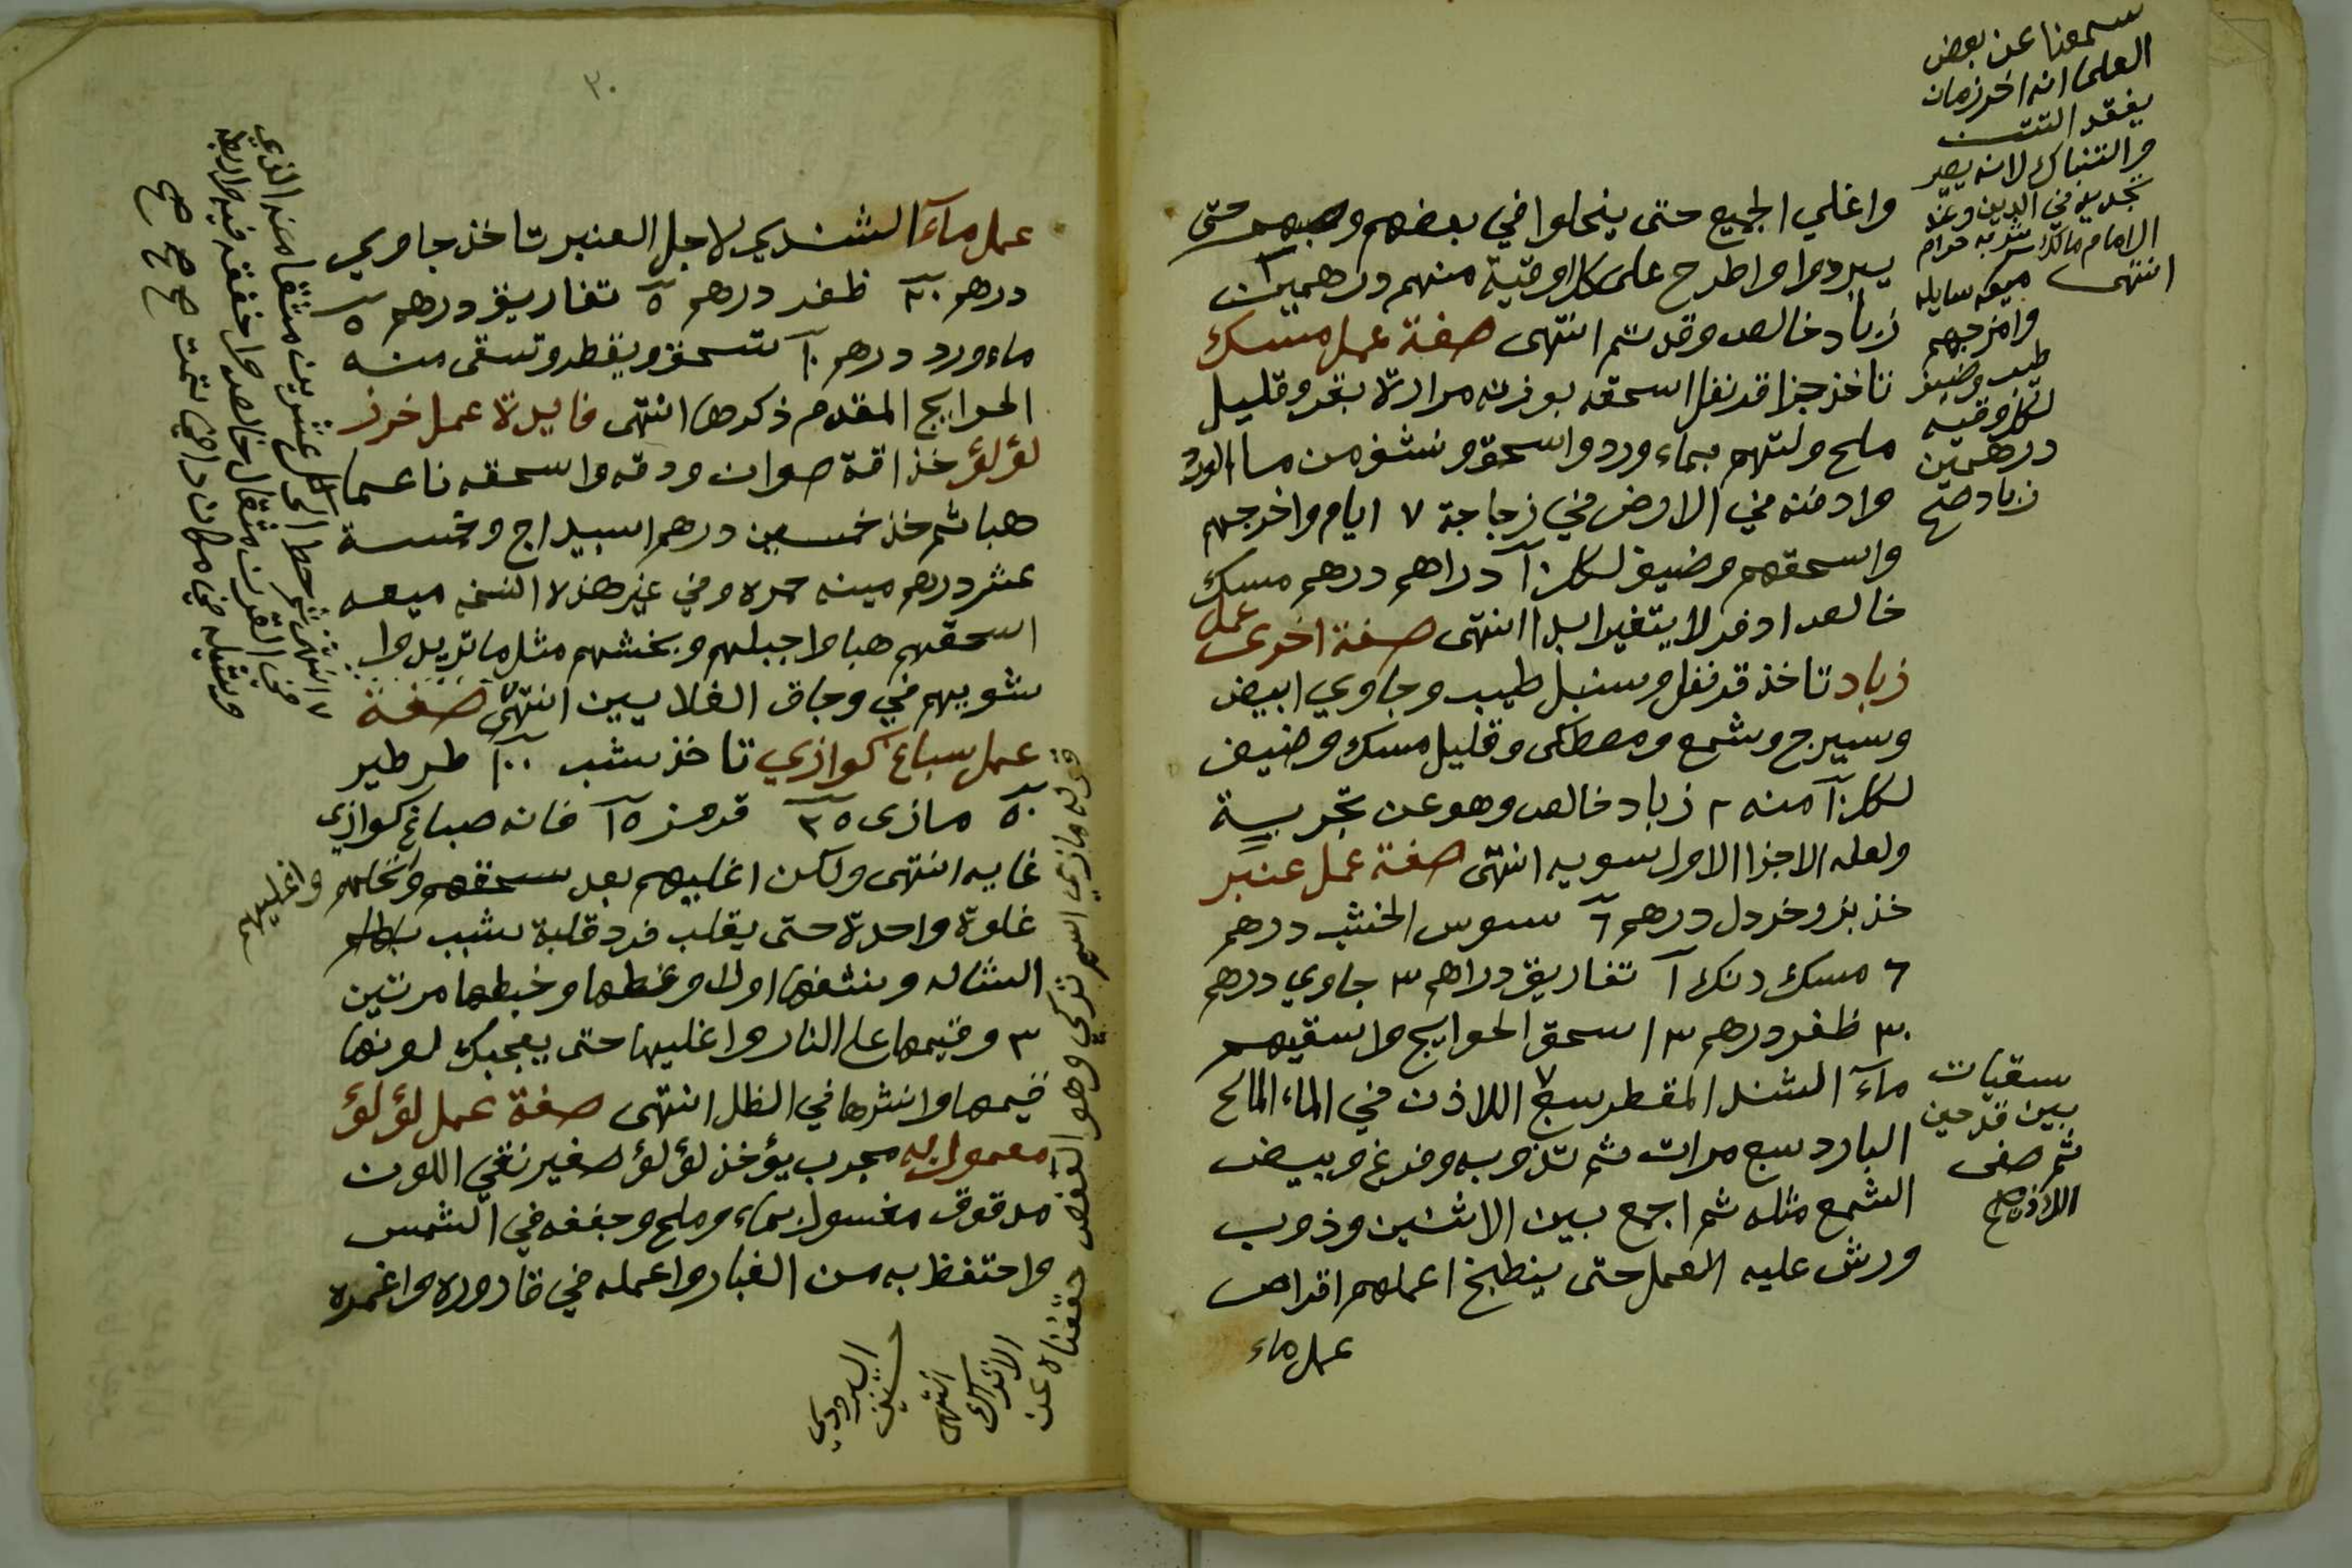 واغلي الجميع حتى ينحلوا في بعضهم وصبهم حتى
يبردوا واطرح على كل اوقية منهم درهمين
زباد خالص وقد تم انتهى صفة عمل مسك
تاخذ جزا قرنفل اسحقه بوزنه مرارة بقر وقليل
ملح ولتهم بماء ورد واسحق ونشف من ماء الورد
وادفنه في الارض في زجاجة ٧ ايام واخرجهم
واسحقهم وضيف لكل ١٠ دراهم درهم مسك
خالص ادفر لا يتغير ابدا انتهى صفة اخرى عمل
زباد تاخذ قرنفل وسنبل طيب وجاوي ابيض
وسيرج وشمع ومصطكى وقليل مسك وضيف
لكل ١٠ منه ٢ زباد خالص وهو عن تجربية
ولعله الاجزا الاول سويه انتهى صفة عمل عنبر
خذ بزر خردل درهم ٦ سوس الخشب درهم
٦ مسك دنك ١ تفاريق دراهم ٣ جاوي درهم
٣٠ ظفر درهم ٣ اسحق الحوايج واسقيهم
مآء الشند المقطر سبع اللاذن في الماء المالح
البارد سبع مرات ثم تذوبه وفرغ وبيض
الشمع مثله ثم اجمع بين الاثنين وذوب
ورش عليه العمل حتى ينطبخ اعملهم اقراص
عمل ماء
سمعنا عن بعض
العلما انه اخر زمان
يفقد التتن
والتنباك لانه يصير
تجديد في الدين وعند
الامام مالك شربه حرام
انتهى
ميعه سايله
وامزجهم
طيب وضيف
لكل وقيه
درهمين
زباد صح
سقيات
بين قدحين
ثم صفى
اللاذن صح
٢٠
عمل مآء الشندي لاجل العنبر تاخذ جاوي
درهم ٢٠ ظفر درهم ٥ تفاريق درهم ٥
ماء ورد درهم ١٠ تسحق ويقطر وتسقى منه
الحوايج المقدم ذكرها انتهى فايدة عمل خرز
لؤلؤ خذ اقة صوان ودقه واسحقه ناعما
هبا ثم خذ خمسين درهم اسبيداج وخمسة
عشر درهم مينه حمره وفي غير هذه النسخه ميعه
اسحقهم هبا واجبلهم وبخشهم مثل ما تريد وا
شويهم في وجاق الغلايين انتهى صفة
عمل سباغ كوازي تاخذ شب ١٠٠ طرطير
٥٠ مازى ٢٥ قرمز ١٥ فانه صباغ كوازي
غايه انتهى ولكن اغليهم بعد سحقهم ونخلهم واغليهم
غلوة واحدة حتى يقلب فرد قلبة شبب
الشاله ونشفها اولا وغطها وخبطها مرتين
٣ وقيمها على النار واغليها حتى يعجبك لونها
قيمها وانشرها في الظل انتهى صفة عمل لؤلؤ
معمول به مجرب يؤخذ لؤلؤ صغير نقي اللون
مدقوق مغسول بماء وملح وجففه في الشمس
واحتفظ به من الغبار واعمله في قاروره واغمره
قوله مازي اسم تركي وهو العفص حققناه عن
الاتراك
انتهى